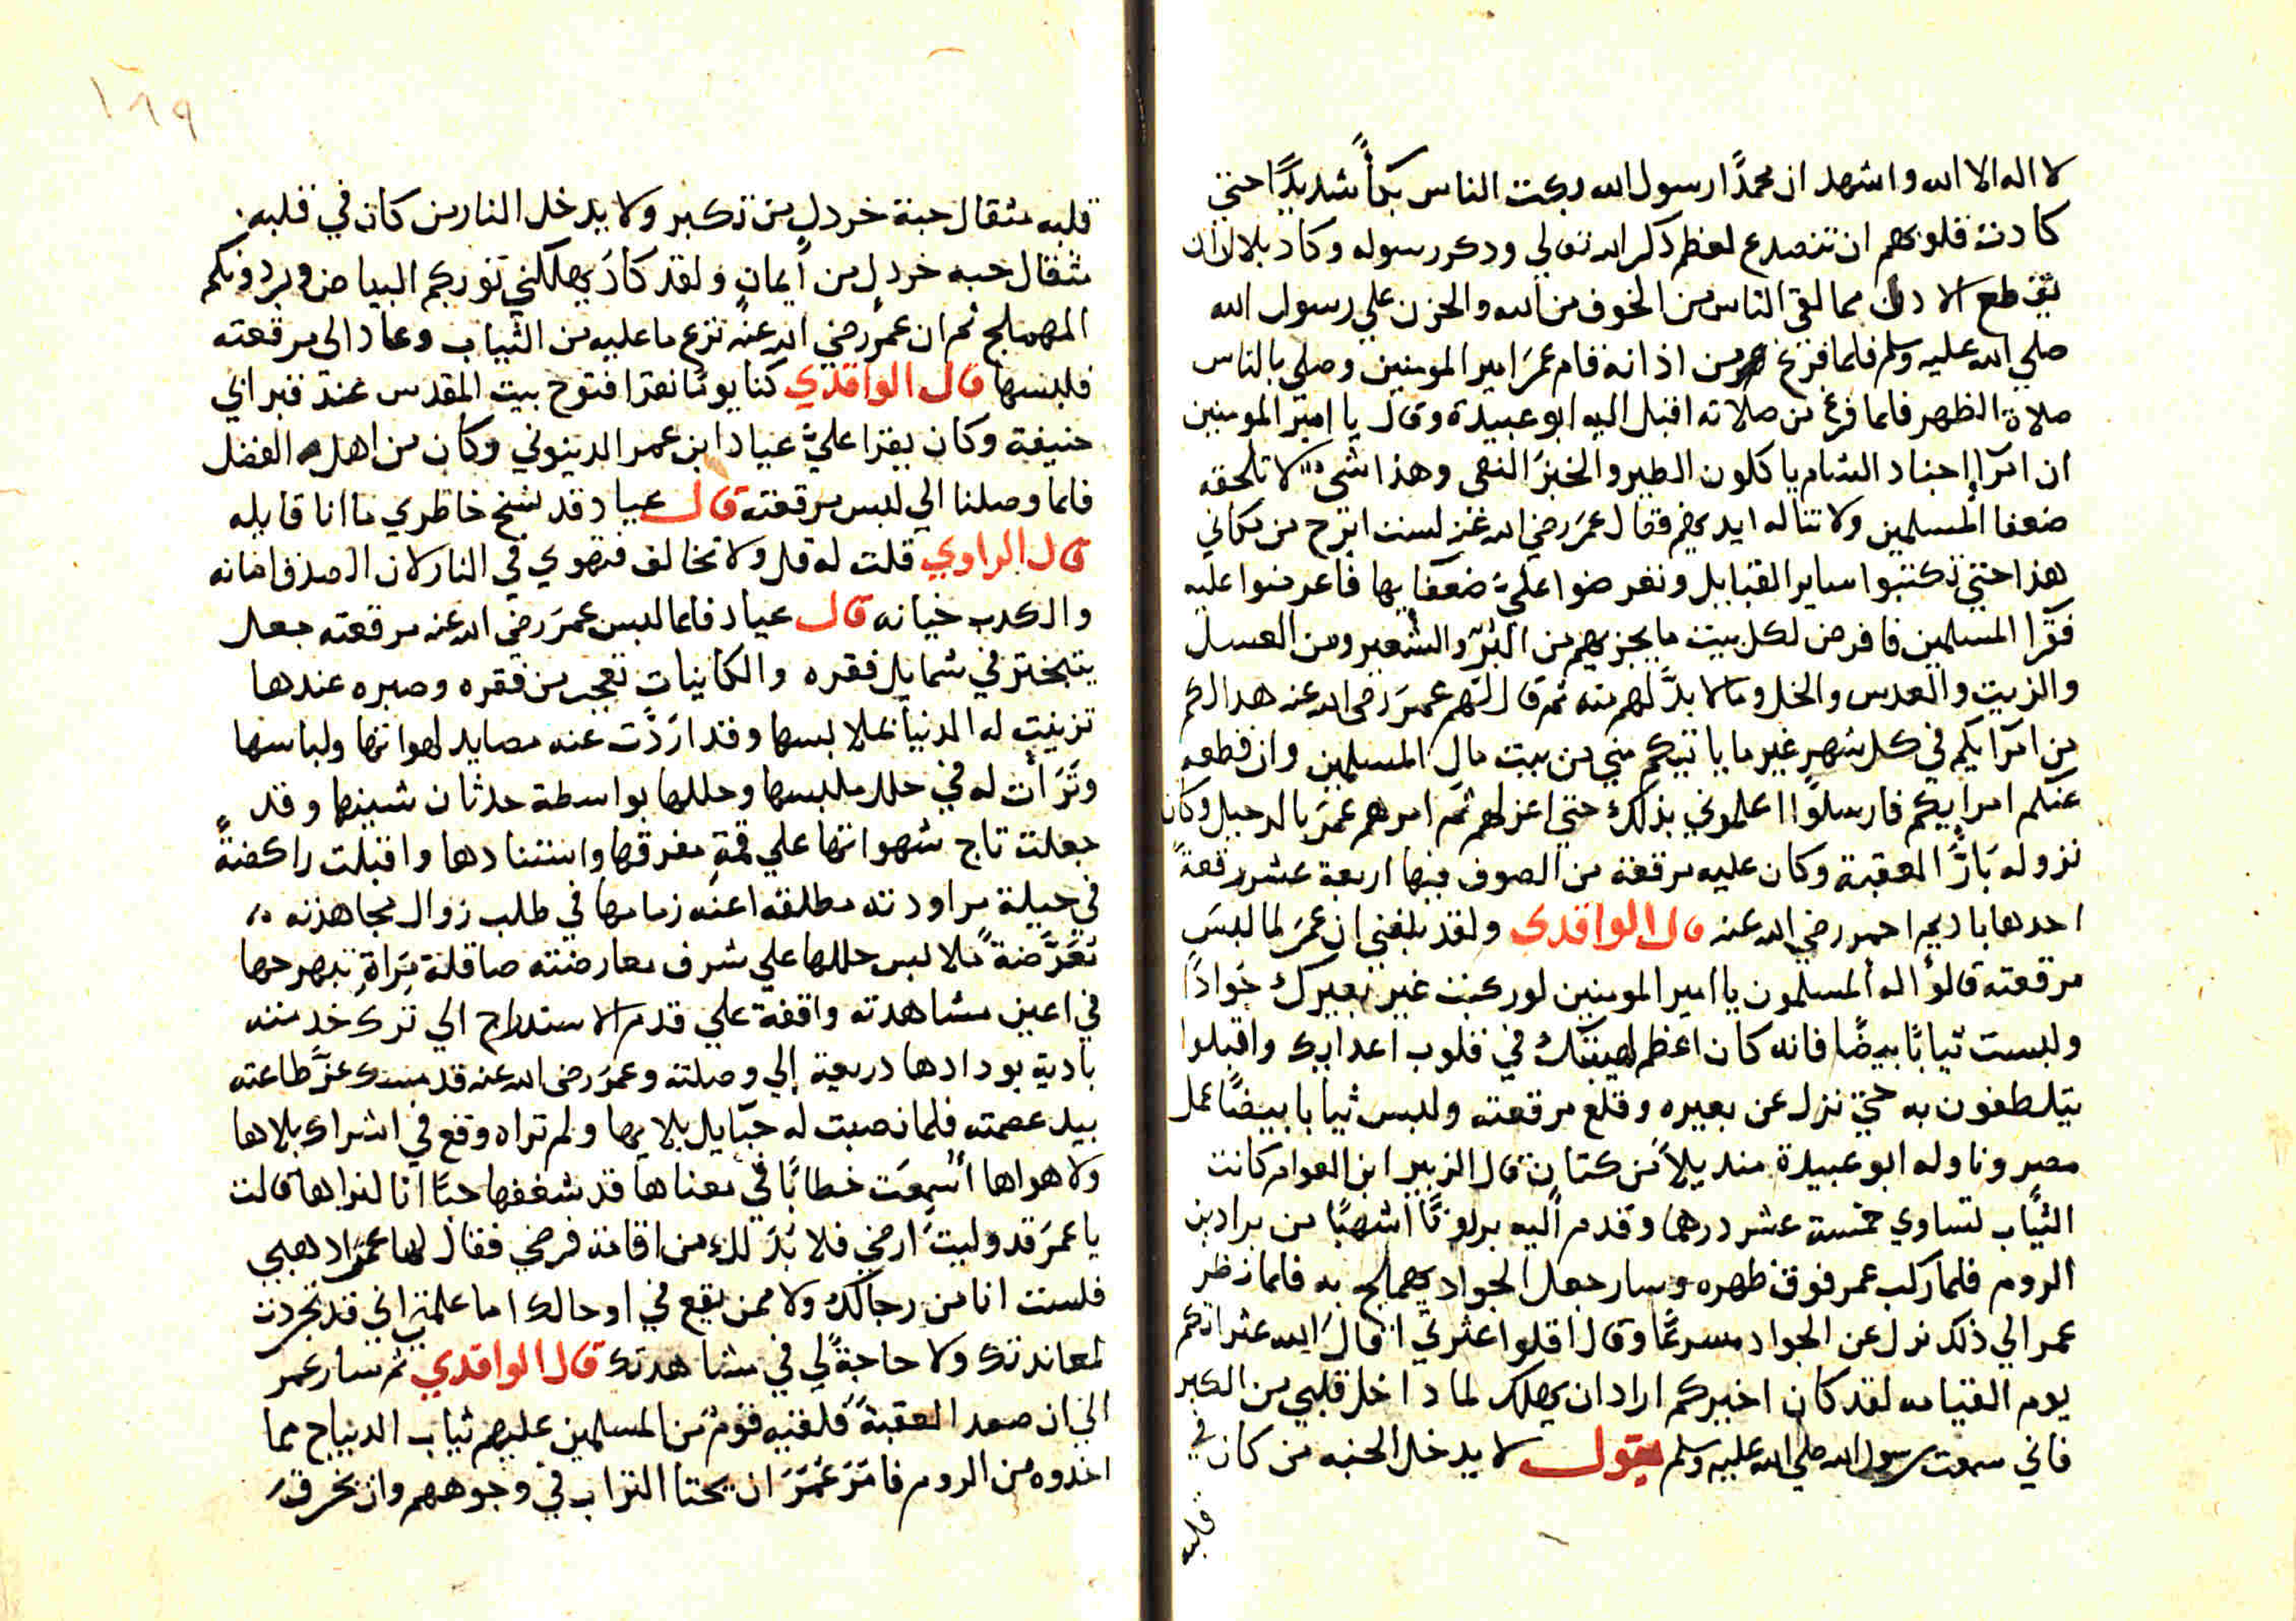 لا اله الا الله واشهد ان محمدًا رسول الله بكت الناس بكاًء شديدًا حتي
كادت قلوبهم ان تتصدع لعظم ذكر الله تعالي ودكر رسوله وكاد بلال ان
يقطع الادان مما لقي الناس من الخوف من الله والحزن علي رسول الله
صلي الله عليه وسلم فلما فرغ من اذانه قام عمَر امير المومنين وصلي بالناس
صلاة الظهر فلما فرغ من صلاته اقبل اليه ابو عبيدة وقال يا امير المومنين
ان امرًا اجناد الشام ياكلون الطير والخبزَ النقي وهذا شيء لا تلحقه
ضعفا المسلمين ولا تناله ايديهم فقال عمَر رضي الله عنه لست ابرح من مكاني
هذا حتي تكتبوا ساير القبايل ونفرضوا عليَّ ضعفايها فاعرضوا عليه
فقرا المسلمين فافرض لكل بيت ما يجزيهم من البُرّ والشعير ومن العسل
والزيت والعدس والخل وما لا بدَّ لهم منه ثم قال لهم عمَر رضي الله عنه هدا لكم
من امرَايكم في كل شهر غير ما ياتيكم مني من بيت مال المسلمين وان قطعه
عنكم امرايكم فارسلوًا اعلموني بذلك حتي اعزلهم ثم امرهم عمَر بالرحيل وكان
نزوله بارَّ العقبة وكان عليه مرقعة من الصوف فيها اربعة عشر رقعةً
احدها باديم احمر رضي الله عنه قال الواقدي ولقد بلغني ان عمَر لما لبسَ
مرقعته قالوُا له المسلمون يا امير المومنين لو ركبت غير بعيرك جَوادًا
ولبست ثيابًا بيضًا فانه كان اعظم لهيبتك في قلوب اعدايك واقبلوا
يتلطفون به حتي نزل عن بعيره وقلع مرقعته ولبس ثيابا بيضًا عمل
مصر وناوله ابو عبيدة منديلاً من كتان قال الزبير ابن العوام كانت
الثياب تساوي خمسة عشر درهما وقدم اليه برذونًا اشهبًا من براذين
الروم فلما ركب عمر فوق ظهره وسار جعل الجواد يهملج به فلما نظر
عمر الي ذلك نزل عن الجواد مسرعًا وقال اقلوا عثرتي اقال الله عثراتكم
يوم القيامه لقد كان اخيركم اراد ان يهلك لما داخل قلبي من الكبر
فاني سمعت رسول الله صلي الله عليه وسلم يقول لا يدخل الجنه من كان في
قلبه
١٨٩
قلبه مثقال حبة خردلٍ من تكبر ولا يدخل النار من كان في قلبه
مثقال حبه خردلٍ من ايمان ولقد كادَ يهلكني توبكم البياض وبردونكم
المهملج ثم ان عمَر رضي الله عنه نزع ما عليه من الثياب وعاد الي مرقعته
فلبسها قال الواقدي كنا يومًا نقرا فتوح بيت المقدس عند قبر ابي
حنيفة وكان يقرا عليَّ عباد ابن عمر الدينوني وكان من اهل الفضل
فلما وصلنا الي لبس مرقعته قال عباد قد شخ خاطري ما انا قايله
قال الراوي قلت له قل ولا تخالف فتهوي في النار لان الصدق امانه
والكدب خيانه قال عباد فلما لبس عمَر رضي الله عنه مرقعته جعل
يتبختر في شمايل فقره والكاينات تعجب من فقره وصبره عندها
تزينت له الدنيا بملابسها وقد ارَدَّت عنه مصايد لهواتها ولباسها
وتَرَأت له في حلل ملبسها وحللها بواسطة حدثان شبيبتها وقد
جعلت تاج شهواتها علي قمةِ مفرقها واستنادها واقبلت راكضةً
في حيلة مراودته مطلقه اعنه زمامها في طلب زوال مجاهدته
تعَرَّضةً ملابس حللها علي شرف معارضته صاقلة مِرَاةِ تبهرجها
في اعين مشاهدته واقفة علي قدم الاستدراج الي ترك خدمته
بادية بودادها دريعة إلي وصلته وعمَر رضي الله عنه قد مسك عزَّ طاعته
بيد عصمته فلما نصبت له حبَايل بلايها ولم تراه وقع في اشراك بلاها
ولا هواها اسمعَت خطابًا في معناها قد شغفها حبًا انا لنراها قالت
يا عمَر قد وليتَ ارضي فلا بُدَ لك من اقامة فرضي فقال لها عمَر ادهبي
فلست انا من رجالك ولا ممن يقع في اوحالك اما علمتي اني قد تجردت
لمعاندتك ولا حاجةً لي في مشاهدتك قال الواقدي ثم سار عمر
الي ان صعد العقبةَ فلقيه قوم من المسلمين عليهم ثياب الديباج مما
اخدوه من الروم فامَرَ عمَرَ ان يحتا التراب في وجوههم وان يخرق